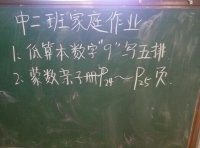 中二班家庭作业
1、低算本数字"9"写五排
2、蒙数亲子册P24~P25页